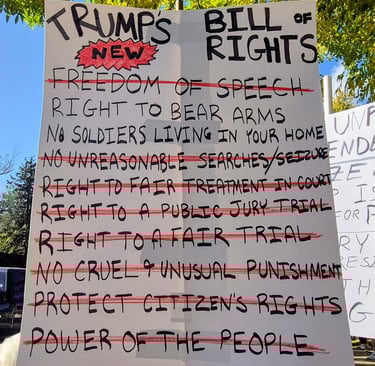 TRUMP'S BILL OF
NEW RIGHTS
FREEDOM OF SPEECH
RIGHT TO BEAR ARMS
NO SOLDIERS LIVING IN YOUR HOME
NO UNREASONABLE SEARCHES/SEIZURE
RIGHT TO FAIR TREATMENT IN COURT
RIGHT TO A PUBLIC JURY TRIAL
RIGHT TO A FAIR TRIAL
NO CRUEL & UNUSUAL PUNISHMENT
PROTECT CITIZEN'S RIGHTS
POWER OF THE PEOPLE